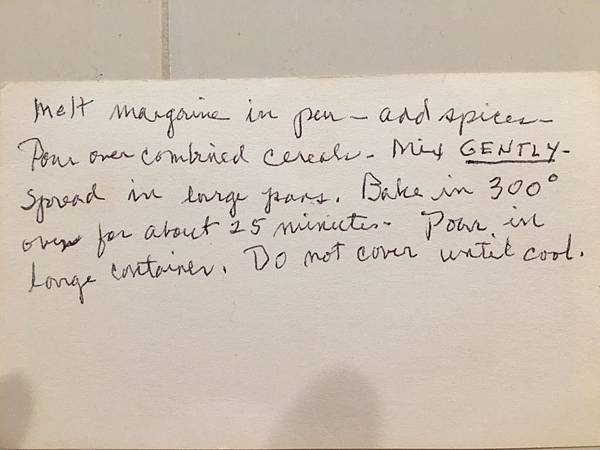 Melt margarine in pan - add spices -
Pour over combined cereals - Mix GENTLY -
Spread in large pans. Bake in 300°
oven for about 25 minutes - Pour in
large container. Do not cover until cool.